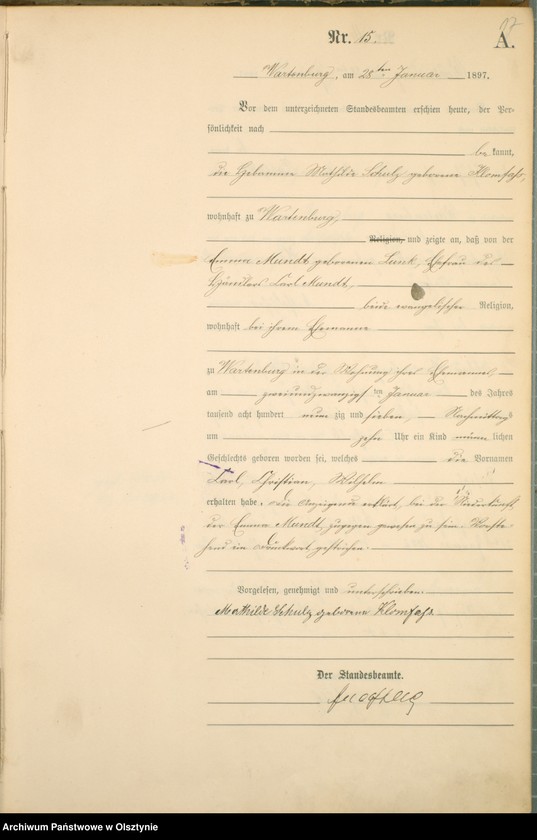 17
Nr. 15. A.
Wartenburg, am 28ten Januar 1897.
Vor dem unterzeichneten Standesbeamten erschien heute, der Per-
sönlichkeit nach
be kannt,
die Hebamme Mathilde Schulz geborene Klomfaß,
wohnhaft zu Wartenburg,
Religion, und zeigte an, daß von der
Emma Mundt geborenen Lunk, Ehefrau des
Händlers Carl Mundt,
beide evangelischer Religion,
wohnhaft bei ihrem Ehemanne
zu Wartenburg in der Wohnung ihres Ehemannes
am zweiundzwanzigsten Januar des Jahres
tausend acht hundert neun zig und sieben, Nachmittags
um zehn Uhr ein Kind männ lichen
Geschlechts geboren worden sei, welches die Vornamen
Carl, Christian, Wilhelm
erhalten habe. Die Anzeigende erklärt, bei der Niederkunft
der Emma Mundt zugegen gewesen zu sein. Vorste-
hend ein Druckwort gestrichen.
Vorgelesen, genehmigt und unterschrieben.
Mathilde Schulz geborene Klomfaß.
Der Standesbeamte.
Archiwum Państwowe w Olsztynie